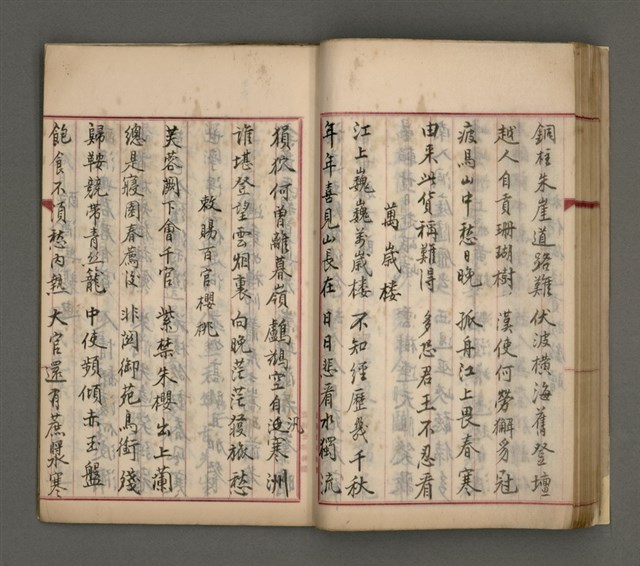 銅柱朱崖道路難 伏波橫海舊登壇
越人自貢珊瑚樹 漢使何勞獬豸冠
疲馬山中愁日晚 孤舟江上畏春寒
由來此貨稱難得 多恐君王不忍看
萬歲楼
江上巍巍萬歲楼 不知經歷幾千秋
年年喜見山長在 日日悲看水獨流
猿狖何曾離暮嶺 鸕鶿空自泛寒洲
誰堪登望雲烟裏 向晚茫茫發旅愁
敕賜百官櫻桃
芙蓉闕下會千官 紫禁朱櫻出上蘭
總是寢園春薦後 非関御苑鳥銜殘
歸鞍競帶青絲籠 中使頻傾赤玉盤
飽食不湏愁內熱 大官還有蔗漿寒